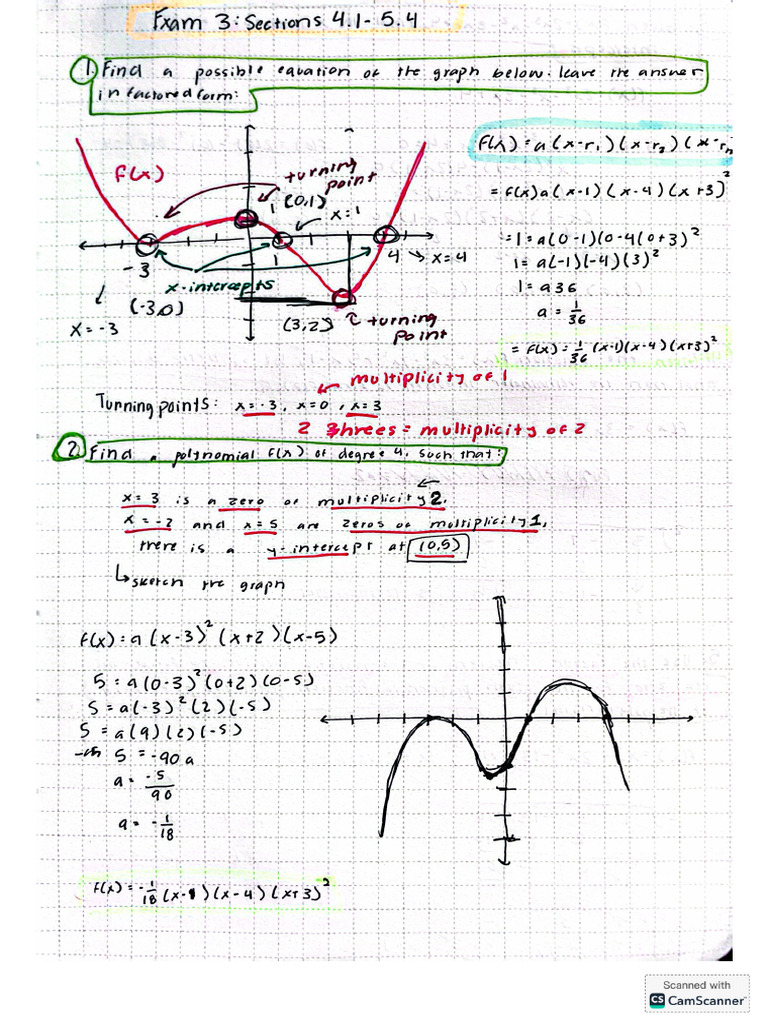 Exam 3: Sections 4.1 - 5.4
1. Find a possible equation of the graph below. leave the answer
in factored form:
f(x) = a(x-r₁)(x-r₂)(x-rₙ
f(x)
turning
point
(0,1)
1
x=1
= f(x)a(x-1)(x-4)(x+3)²
= 1 = a(0-1)(0-4(0+3)²
1 = a(-1)(-4)(3)²
1 = a36
a = 1/36
= f(x) = 1/36 (x-1)(x-4)(x+3)²
-3
1
4 → x=4
x-intercepts
(-3,0)
x = -3
(3,2)
turning
point
multiplicity of 1
Turning points: x=-3, x=0, x=3
2 3hrees = multiplicity of 2
2. Find a polynomial f(x) of degree 4, such that:
x=3 is a zero of multiplicity 2.
x=-2 and x=5 are zeros of multiplicity 1,
there is a y-intercept at (0,5)
↳ sketch the graph
f(x) = a(x-3)²(x+2)(x-5)
5 = a(0-3)²(0+2)(0-5)
5 = a(-3)²(2)(-5)
5 = a(9)(2)(-5)
5 = -90a
a = -5/90
a = -1/18
f(x) = -1/18 (x-1)(x-4)(x+3)²
Scanned with
CS CamScanner